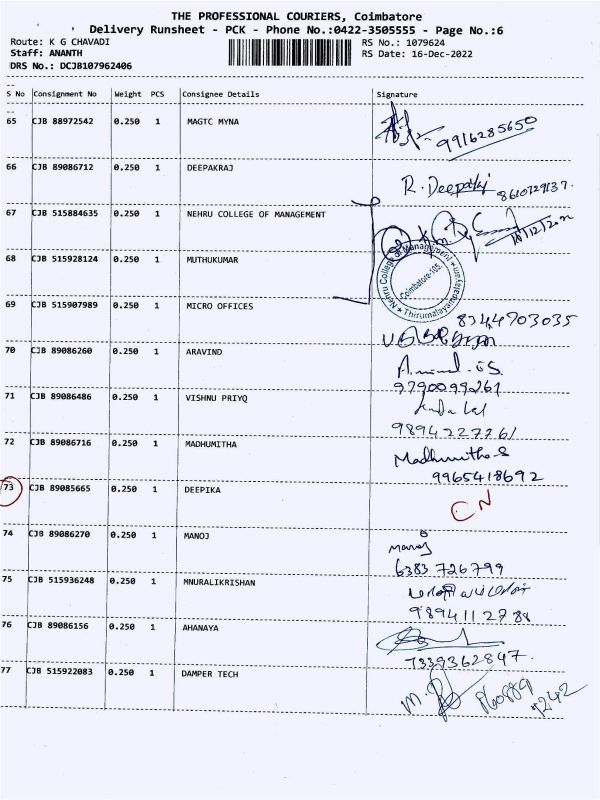 THE PROFESSIONAL COURIERS, Coimbatore
Delivery Runsheet - PCK - Phone No.:0422-3505555 - Page No.:6
Route: K G CHAVADI
RS No.: 1079624
Staff: ANANTH
RS Date: 16-Dec-2022
DRS No.: DCJB107962406
S No Consignment No Weight PCS Consignee Details Signature
65 CJB 88972542 0.250 1 MAGTC MYNA
9916285650
66 CJB 89086712 0.250 1 DEEPAKRAJ
R. Deepakraj 8610729137.
67 CJB 515884635 0.250 1 NEHRU COLLEGE OF MANAGEMENT
16/12/2022
68 CJB 515928124 0.250 1 MUTHUKUMAR
Nehru College of Management ★ Thirumalayampalayam ★
Coimbatore-105
69 CJB 515907989 0.250 1 MICRO OFFICES
8344703035
70 CJB 89086260 0.250 1 ARAVIND
9790099261
71 CJB 89086486 0.250 1 VISHNU PRIYQ
9894227761
72 CJB 89086716 0.250 1 MADHUMITHA
Madhumitha.S
9965418692
73 CJB 89085665 0.250 1 DEEPIKA
CN
74 CJB 89086270 0.250 1 MANOJ
Manoj
6383726799
75 CJB 515936248 0.250 1 MNURALIKRISHAN
9894112788
76 CJB 89086156 0.250 1 AHANAYA
7339362847.
77 CJB 515922083 0.250 1 DAMPER TECH